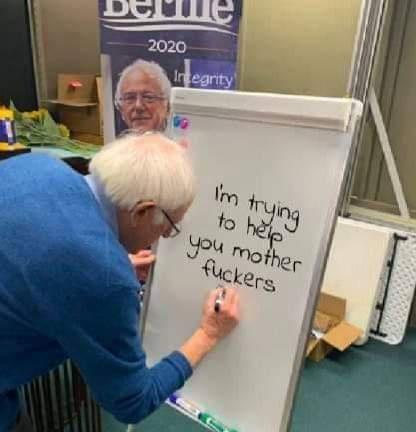 Bernie
2020
Integrity
I'm trying
to help
you mother
fuckers